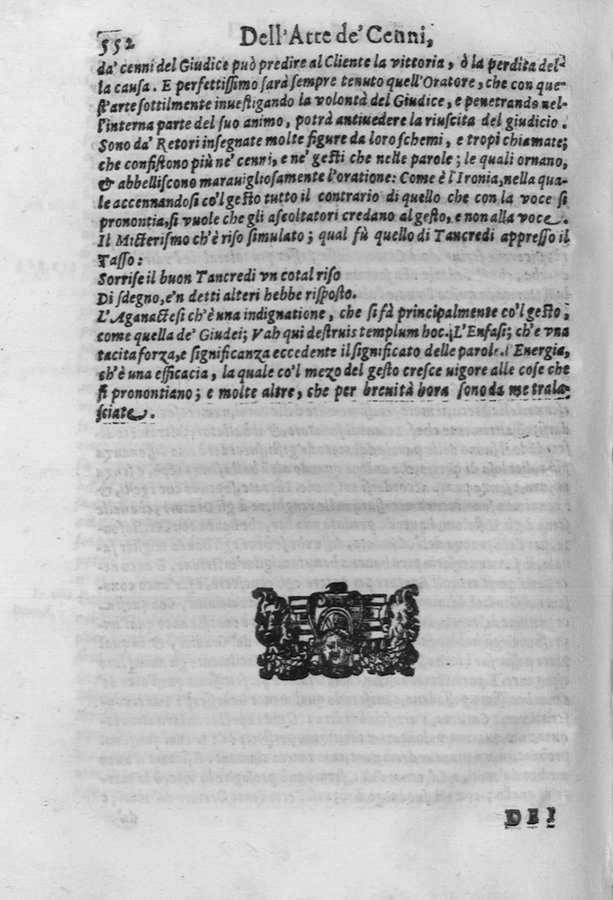 552
Dell'Arte de' Cenni,
da' cenni del Giudice può predire al Cliente la vittoria, ò la perdita del-
la causa. E perfettissimo sarà sempre tenuto quell'Oratore, che con que-
st'arte sottilmente inuestigando la volontà del Giudice, e penetrando nel-
l'interna parte del suo animo, potrà antiuedere la riuscita del giudicio.
Sono da' Retori insegnate molte figure da loro schemi, e tropi chiamate;
che consistono più ne' cenni, e ne' gesti che nelle parole; le quali ornano,
& abbelliscono marauigliosamente l'oratione: Come è l'Ironia, nella qua-
le accennandosi co'l gesto tutto il contrario di quello che con la voce si
pronontia, si vuole che gli ascoltatori credano al gesto, e non alla voce.
Il Micterismo ch'è riso simulato; qual fù quello di Tancredi appresso il
Tasso:
Sorrise il buon Tancredi vn cotal riso
Di sdegno, e'n detti alteri hebbe risposto.
L'Aganactesi ch'è una indignatione, che si fà principalmente co'l gesto,
come quella de' Giudei; Vah qui destruis templum hoc. L'Enfasi; ch'è vna
tacita forza, e significanza eccedente il significato delle parole. l'Energia,
ch'è una efficacia, la quale co'l mezo del gesto cresce uigore alle cose che
si pronontiano; e molte altre, che per breuità hora sono da me trala-
sciate.
DEI